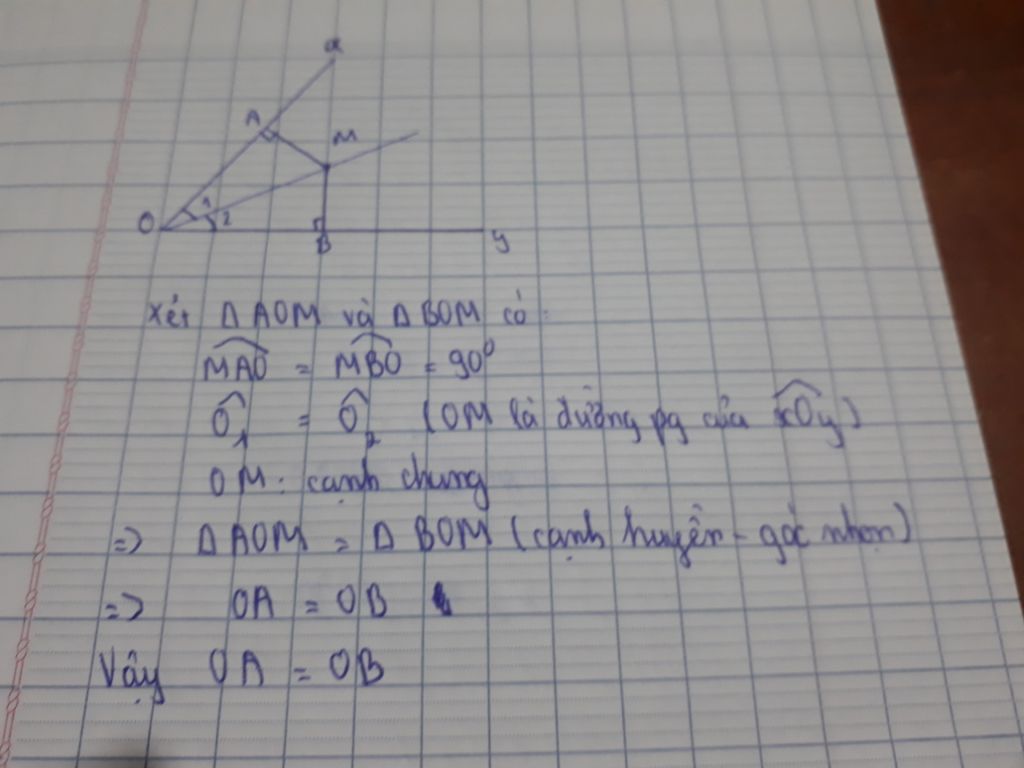 x
A
M
O
1
2
B
y
Xét Δ AOM và Δ BOM có:
MAO = MBO = 90⁰
O₁ = O₂ (OM là đường pg của xOy)
OM: cạnh chung
=> Δ AOM = Δ BOM (cạnh huyền - góc nhọn)
=> OA = OB
Vậy OA = OB